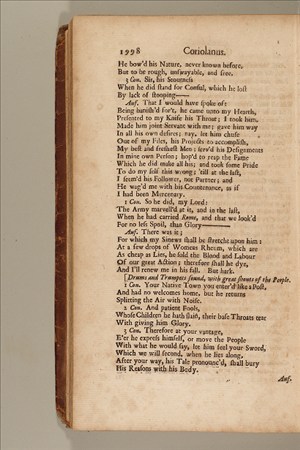 1998 Coriolanus.
He bow'd his Nature, never known before,
But to be rough, unswayable, and free.
3 Con. Sir, his Stoutness
When he did stand for Consul, which he lost
By lack of stooping——
Auf. That I would have spoke of:
Being banish'd for't, he came unto my Hearth,
Presented to my Knife his Throat; I took him,
Made him joint Servant with me; gave him way
In all his own desires; nay, let him chuse
Out of my Files, his Projects to accomplish,
My best and freshest Men; serv'd his Designments
In mine own Person; hop'd to reap the Fame
Which he did make all his; and took some Pride
To do my self this wrong; 'till at the last,
I seem'd his Follower, not Partner; and
He wag'd me with his Countenance, as if
I had been Mercenary.
1 Con. So he did, my Lord:
The Army marvell'd at it, and in the last,
When he had carried Rome, and that we look'd
For no less Spoil, than Glory——
Auf. There was it;
For which my Sinews shall be stretcht upon him:
At a few drops of Womens Rheum, which are
As cheap as Lies, he sold the Blood and Labour
Of our great Action; therefore shall he dye,
And I'll renew me in his fall. But hark.
[Drums and Trumpets sound, with great shouts of the People.
1 Con. Your Native Town you enter'd like a Post,
And had no welcomes home, but he returns
Splitting the Air with Noise.
2 Con. And patient Fools,
Whose Children he hath slain, their base Throats tear
With giving him Glory.
3 Con. Therefore at your vantage,
E'er he express himself, or move the People
With what he would say, let him feel your Sword,
Which we will second, when he lies along,
After your way, his Tale pronounc'd, shall bury
His Reasons with his Body.
Auf.